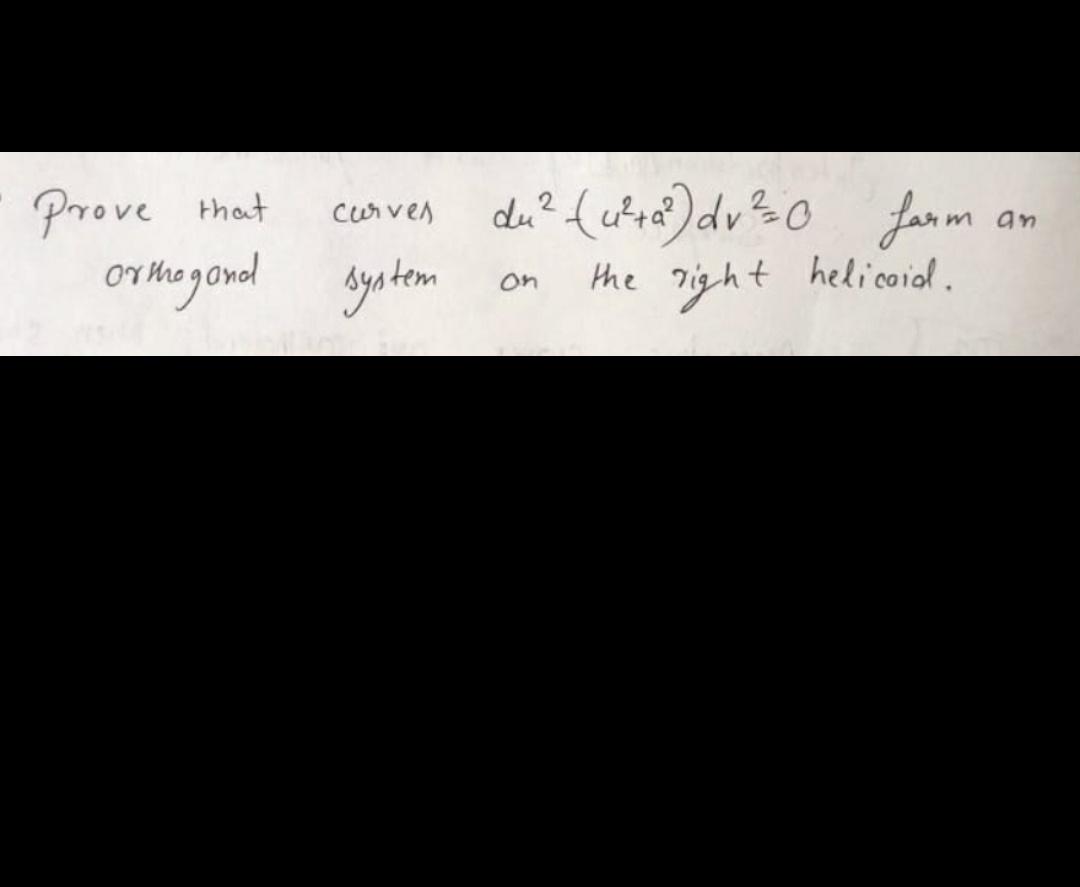 Prove that curves du² - (u²+a²)dv²=0 form an
orthogonal system on the right helicoid.